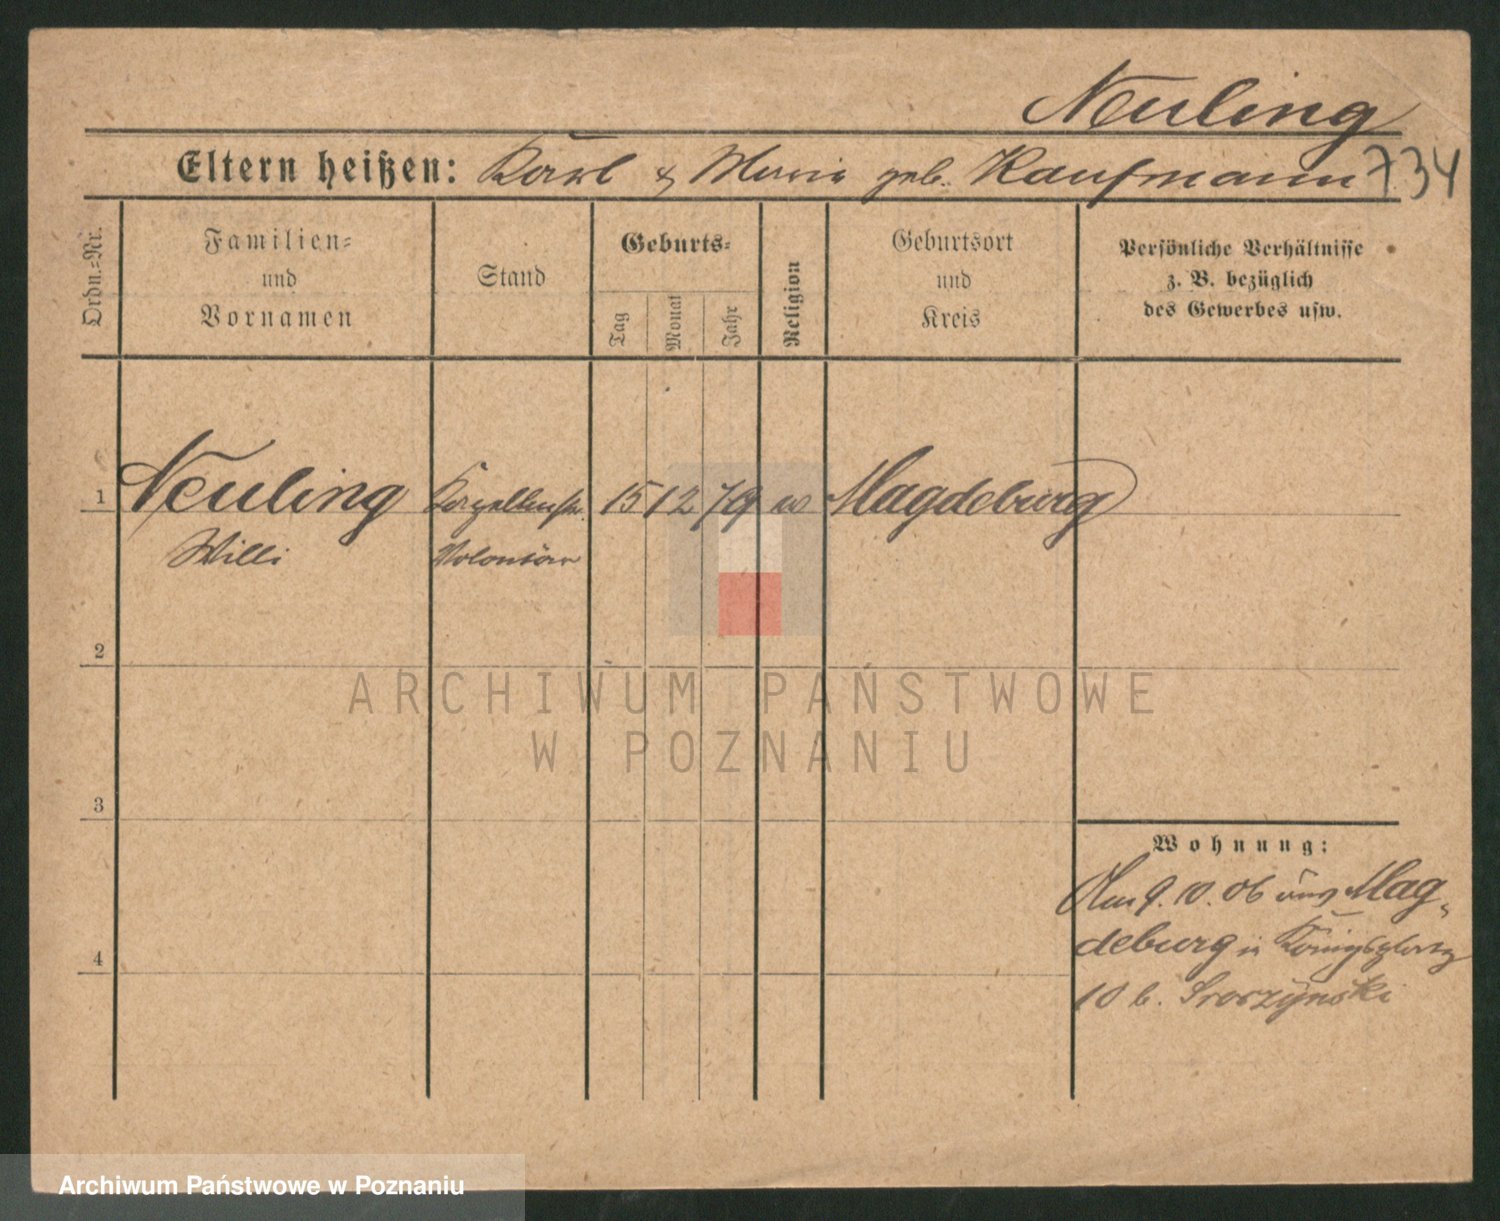 Neuling
Eltern heißen: Karl & Maria geb. Kaufmann 734
Ordn.=Nr.
Familien=
und
Vornamen
Stand
Geburts=
Tag
Monat
Jahr
Religion
Geburtsort
und
Kreis
Persönliche Verhältnisse
z. B. bezüglich
des Gewerbes usw.
1 Neuling 15 12 79 Magdeburg
Willi Volontär
2
ARCHIWUM PAŃSTWOWE
W POZNANIU
3
Wohnung:
Am 9. 10. 06 aus Mag-
deburg in Königsplatz
4
10 b.
Archiwum Państwowe w Poznaniu